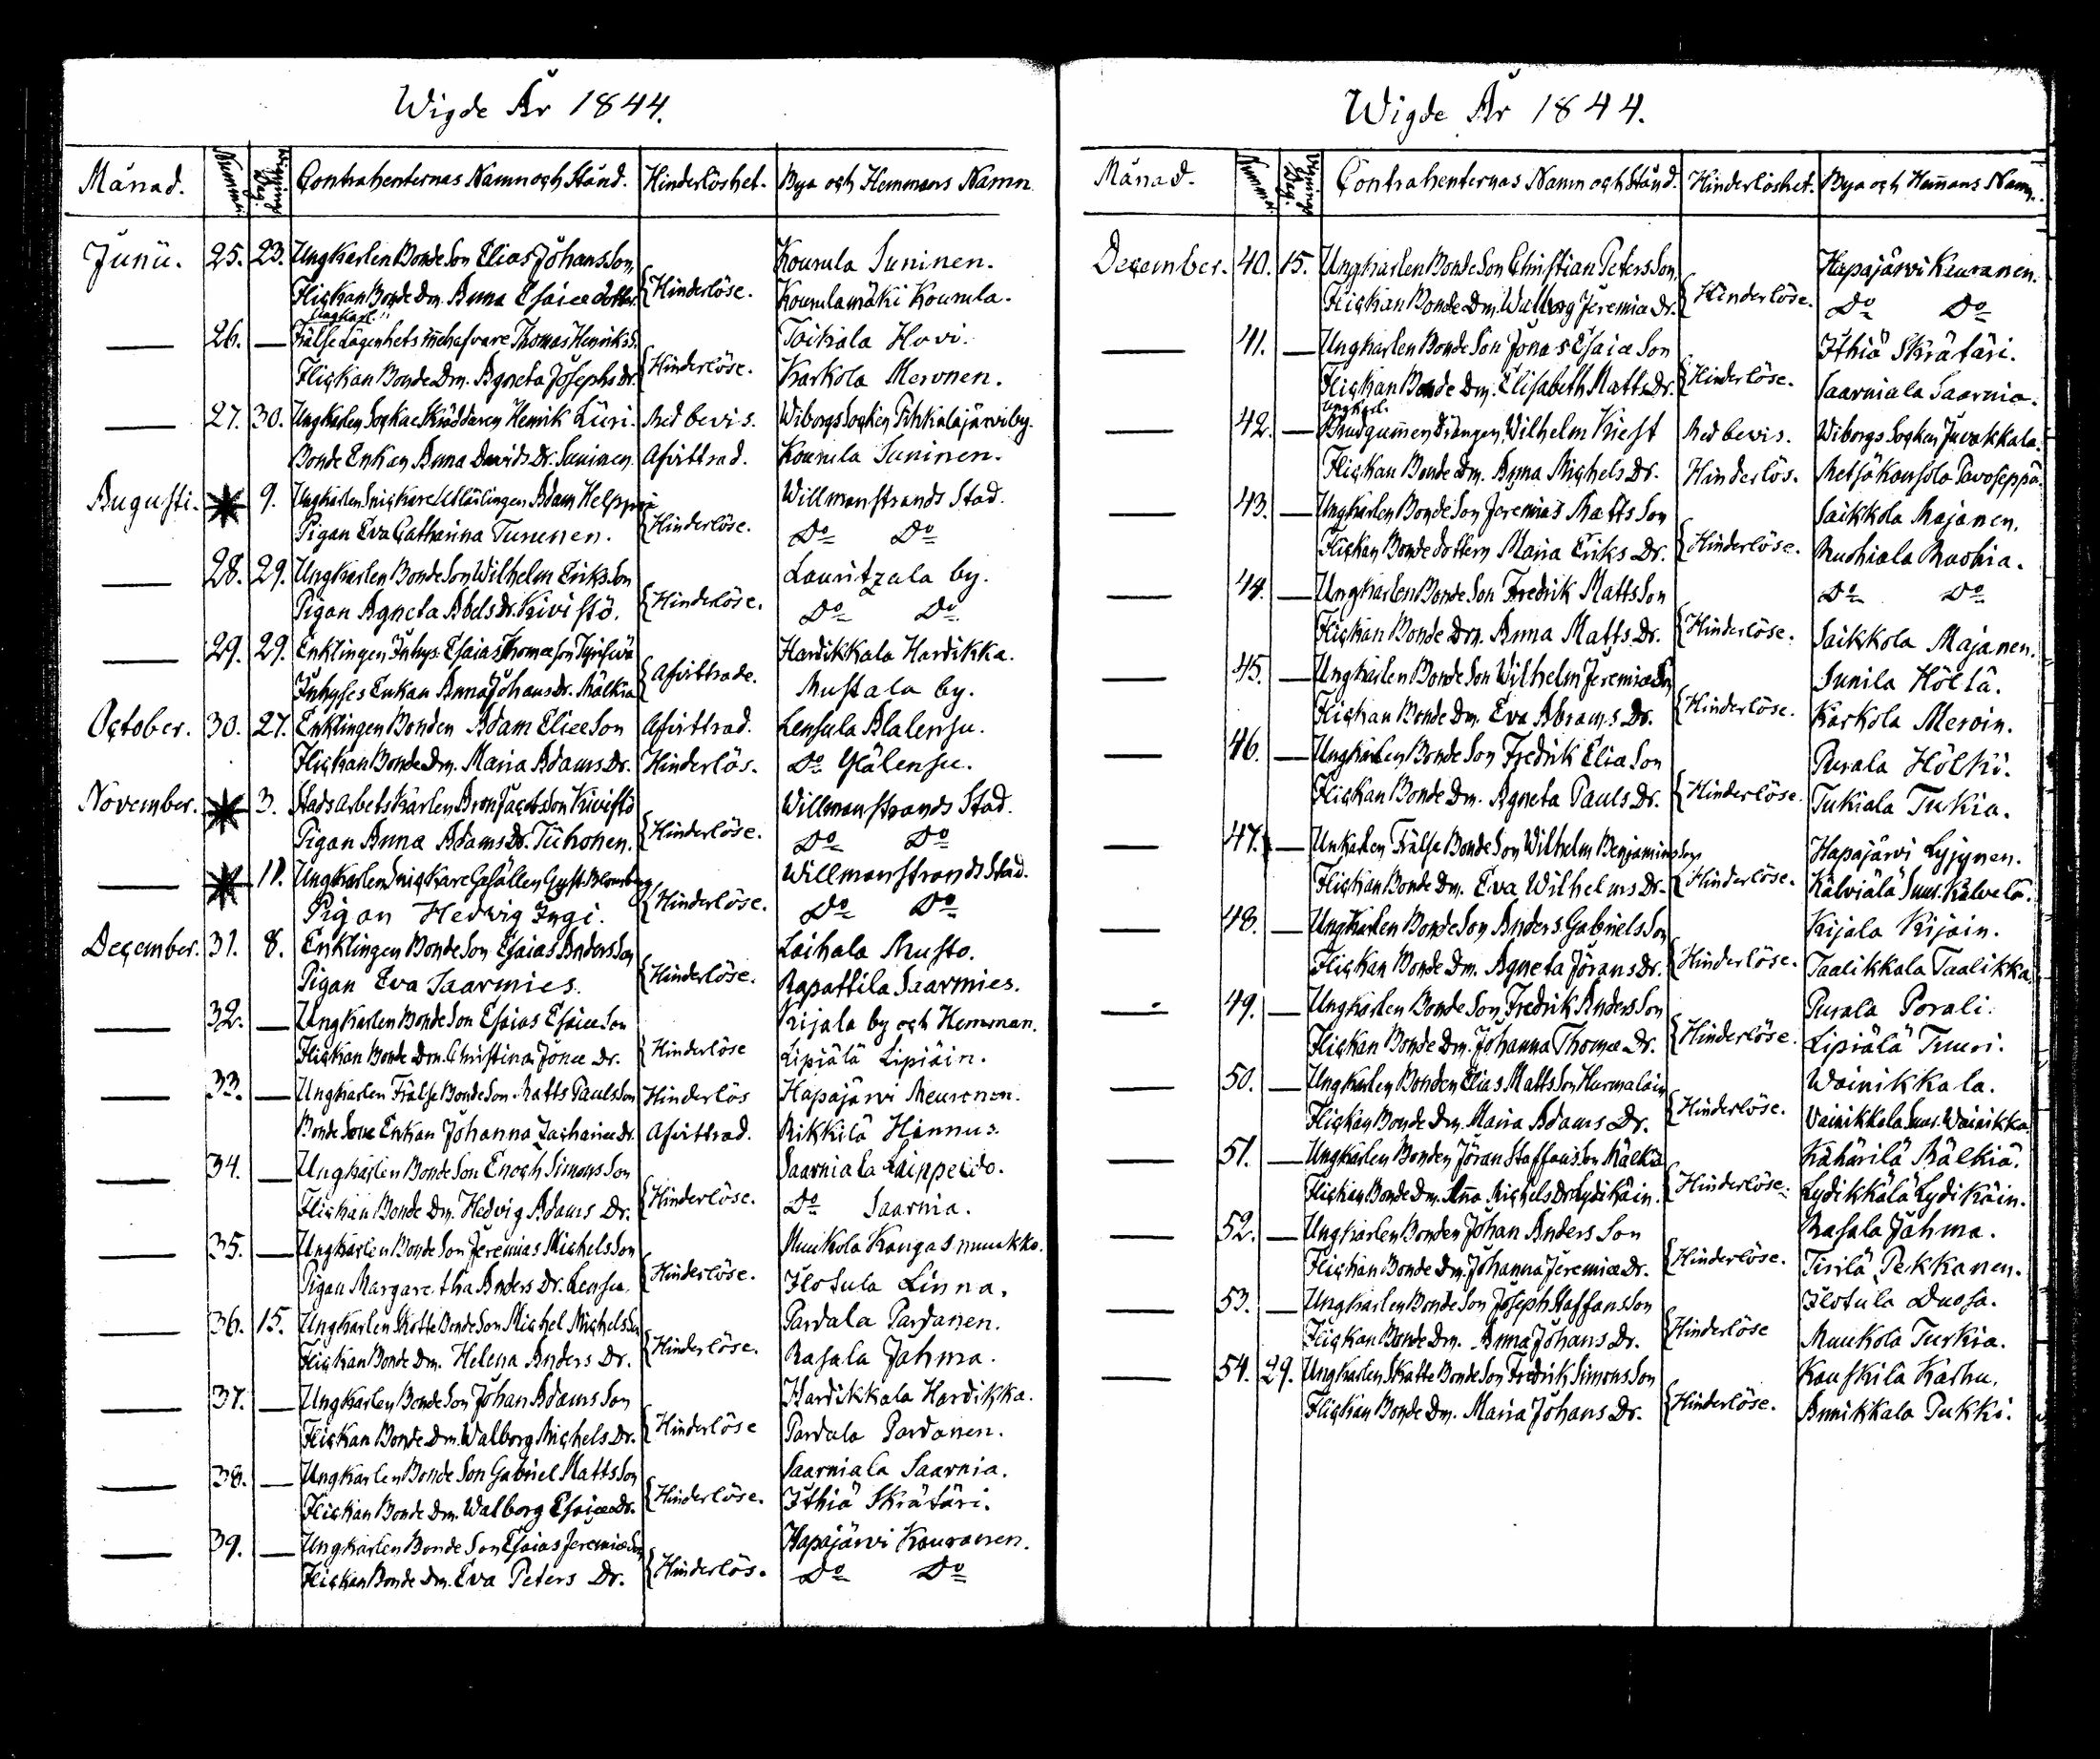 Wigde År 1844.
Månad. Nummer. Wignings Dag. Contrahenternas Namn och Stånd. Hinderlöshet. Bya och Hemmans Namn.
Junii. 25. 23. Ungkarlen Bonde Son Elias Johansson, Kourula Suninen.
Flickan Bonde Dm. Anna Esaiæ dotter. Hinderlöse. Kourulamäki Kourula.
Ungkarl.
— 26. — Frälse Lägenhets innehafvare Thomas Henriks S. Toikala Hovi.
Flickan Bonde Dm. Agneta Josephs Dr. Hinderlöse. Karkola Meronen.
— 27. 30. Ungkarlen Sockne Skräddaren Henrik Liiri. Med bevis. Wiborgs Socken Pihkalajärvi by.
Bonde Enkan Anna Davids Dr. Suninen. Afvittrad. Kourula Suninen.
Augusti. 9. Ungkarlen Snickare Utlärlingen Adam Helppiä Willmanstrands Stad.
Pigan Eva Catharina Tunenen. Hinderlöse. Do Do
— 28. 29. Ungkarlen Bonde Son Wilhelm Eriksson Lauritzala by.
Pigan Agneta Abels Dr. Kivistö. Hinderlöse. Do Do
— 29. 29. Enklingen Inhys. Esaias Thomæson Hardikkala Hardikka.
Inhyses Enkan Anna Johans Dr. Mälkiä Afvittrade. Mustala by.
October. 30. 27. Enklingen Bonden Adam Eliæ Son Afvittrad. Lensula Alalensu.
Flickan Bonde Dm. Maria Adams Dr. Hinderlös. Do Ylälensu.
November. 3. Stads arbets Karlen Aron Jacobsson Kivistö Willmanstrands Stad.
Pigan Anna Adams Dr. Tiihonen. Hinderlöse. Do Do
— 11. Ungkarlen Snickare Gesällen Gust. Blomberg Willmanstrands Stad.
Pigan Hedvig Ingi. Hinderlöse. Do Do
December. 31. 8. Enklingen Bonde Son Esaias Andersson Laihala Musto.
Pigan Eva Saarmies. Hinderlöse. Rapattila Saarmies.
— 32. — Ungkarlen Bonde Son Esaias Esaiæ Son Kijala by och Hemman.
Flickan Bonde Dm. Christina Jonæ Dr. Hinderlöse Lipiälä Lipiäin.
— 33. — Ungkarlen Frälse Bonde Son Matts Paulsson Hinderlös Hapajärvi Meuronen.
Bonde Sone Enkan Johanna Zachariæ Dr. Afvittrad. Rikkilä Hannus.
— 34. — Ungkarlen Bonde Son Enoch Simons Son Saarniala Laippeido.
Flickan Bonde Dm. Hedvig Adams Dr. Hinderlöse. Do Saarnia.
— 35. — Ungkarlen Bonde Son Jeremias Michels Son Muukola Kangasmuukko.
Pigan Margaretha Anders Dr. Lensu. Hinderlöse. Ilotula Linna.
— 36. 15. Ungkarlen Skatte Bonde Son Michel Michels Son Pardala Pardanen.
Flickan Bonde Dm. Helena Anders Dr. Hinderlöse. Rasala Jahma.
— 37. — Ungkarlen Bonde Son Johan Adams Son Hardikkala Hardikka.
Flickan Bonde Dm. Walborg Michels Dr. Hinderlöse Pardala Pardanen.
— 38. — Ungkarlen Bonde Son Gabriel Matts Son Saarniala Saarnia.
Flickan Bonde Dm. Walborg Esaiæ Dr. Hinderlöse. Ithiä Skrätäri.
— 39. — Ungkarlen Bonde Son Esaias Jeremiæ Son Hapajärvi Kauranen.
Flickan Bonde Dm. Eva Peters Dr. Hinderlös. Do Do
Wigde År 1844.
Månad. Nummer. Wignings Dag. Contrahenternas Namn och Stånd. Hinderlöshet. Bya och Hemmans Namn.
December. 40. 15. Ungkarlen Bonde Son Christian Peters Son, Hapajärvi Kauranen.
Flickan Bonde Dm. Walborg Jeremiæ Dr. Hinderlöse. Do Do
— 41. — Ungkarlen Bonde Son Jonas Esaiæ Son Ithiä Skrätäri.
Flickan Bonde Dm. Elisabeth Matts Dr. Hinderlöse. Saarniala Saarnia.
Ungkarl.
— 42. — Brudgummen Drängen Wilhelm Kiest Med bevis. Wiborgs Socken Juvakkala.
Flickan Bonde Dm. Anna Michels Dr. Hinderlös. Metsäkansola Pavoseppä.
— 43. — Ungkarlen Bonde Son Jeremias Matts Son Saikkola Majanen.
Flickan Bonde dottern Maria Eriks Dr. Hinderlöse. Ruohiala Ruohia.
— 44. — Ungkarlen Bonde Son Fredrik Matts Son Do Do
Flickan Bonde Dm. Anna Matts Dr. Hinderlöse. Saikkola Majanen.
— 45. — Ungkarlen Bonde Son Wilhelm Jeremiæ Son Sunila Höltä.
Flickan Bonde Dm. Eva Abrams Dr. Hinderlöse. Karkola Meroin.
— 46. — Ungkarlen Bonde Son Fredrik Eliæ Son Purala Hölki.
Flickan Bonde Dm. Agneta Pauls Dr. Hinderlöse. Tukiala Tukia.
— 47. — Unkarlen Frälse Bonde Son Wilhelm Benjamins Son Hapajärvi Lyjynen.
Flickan Bonde Dm. Eva Wilhelms Dr. Hinderlöse. Kälviälä Suur. Kälvelä.
— 48. — Ungkarlen Bonde Son Anders Gabriels Son Kijala Kijain.
Flickan Bonde Dm. Agneta Jörans Dr. Hinderlöse. Taalikkala Taalikka.
— 49. — Ungkarlen Bonde Son Fredrik Anders Son Purala Porali.
Flickan Bonde Dm. Johanna Thomæ Dr. Hinderlöse. Lipiälä Tuuri.
— 50. — Ungkarlen Bonden Elias Matts Son Hurmalain Wainikkala.
Flickan Bonde Dm. Maria Adams Dr. Hinderlöse. Vainikkala Suur. Wainikka.
— 51. — Ungkarlen Bonden Jöran Staffans Son Mälkiä Kähärilä Mälkiä.
Flickan Bonde Dm. Anna Michels Dr. Lydikäin. Hinderlöse. Lydikkälä Lydikäin.
— 52. — Ungkarlen Bonden Johan Anders Son Rasala Jahma.
Flickan Bonde Dm. Johanna Jeremiæ Dr. Hinderlöse. Tirilä Pekkanen.
— 53. — Ungkarlen Bonde Son Joseph Staffans Son Ilotula Duosa.
Flickan Bonde Dm. Anna Johans Dr. Hinderlöse Muukola Turkia.
— 54. 29. Ungkarlen Skatte Bonde Son Fredrik Simons Son Kauskila Karhu.
Flickan Bonde Dm. Maria Johans Dr. Hinderlöse. Annikkala Pukki.